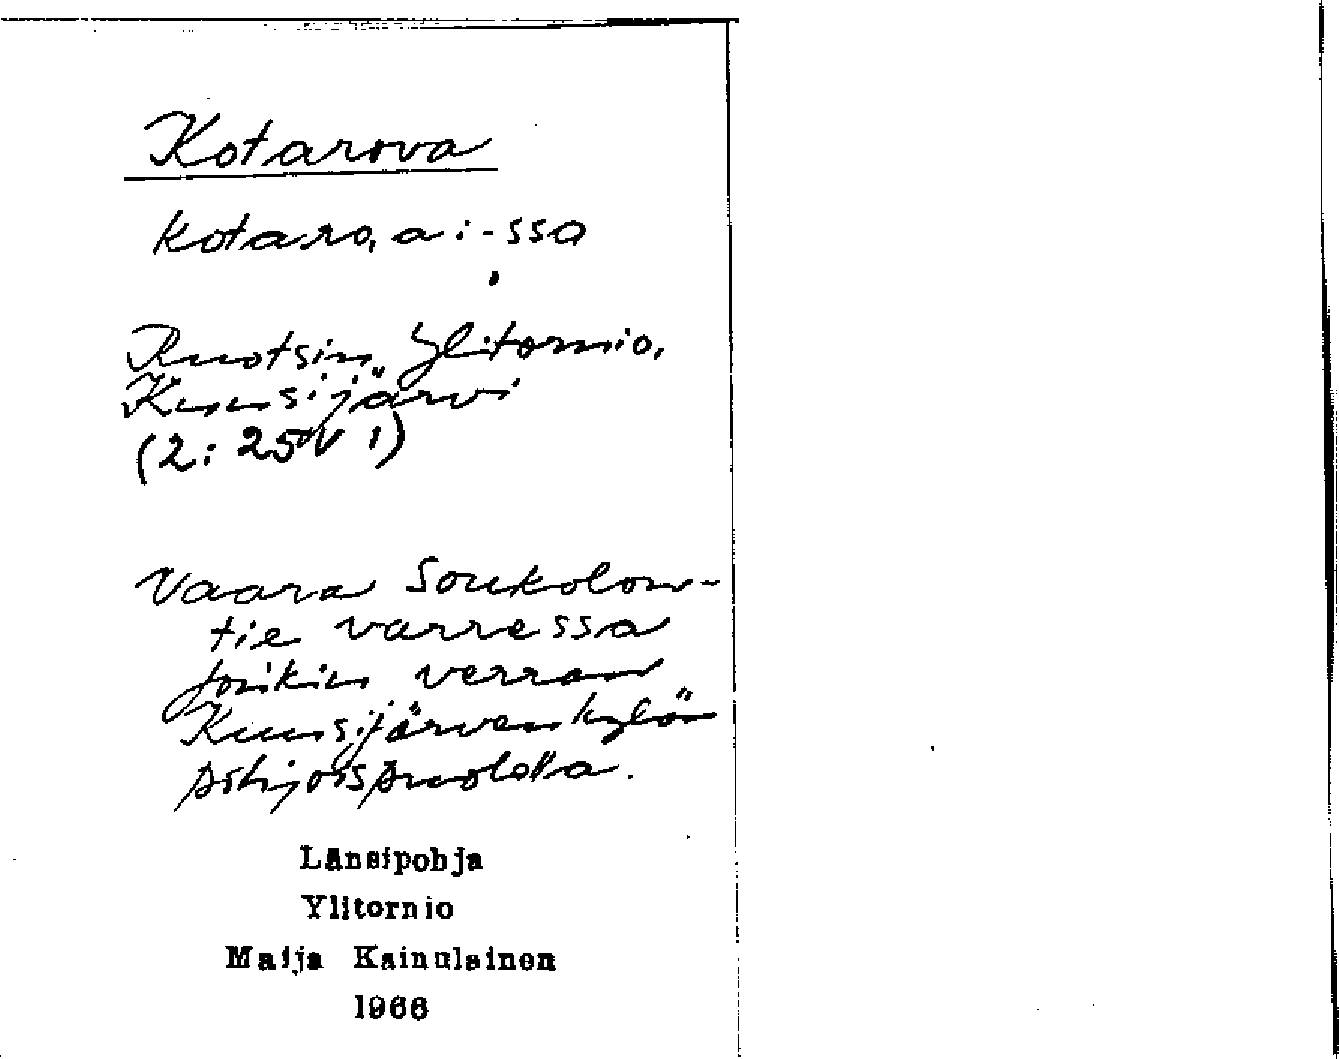 Kotarova
kotaro,a :-ssa
Ruotsin Ylitornio,
Kuusijärvi
(2: 25 1)
Vaara Soukolon-
tie varressa
jonkin verran
Kuusijärvenkylän
pohjoispuolella.
Länsipohja
Ylitornio
Maija Kainulainen
1966